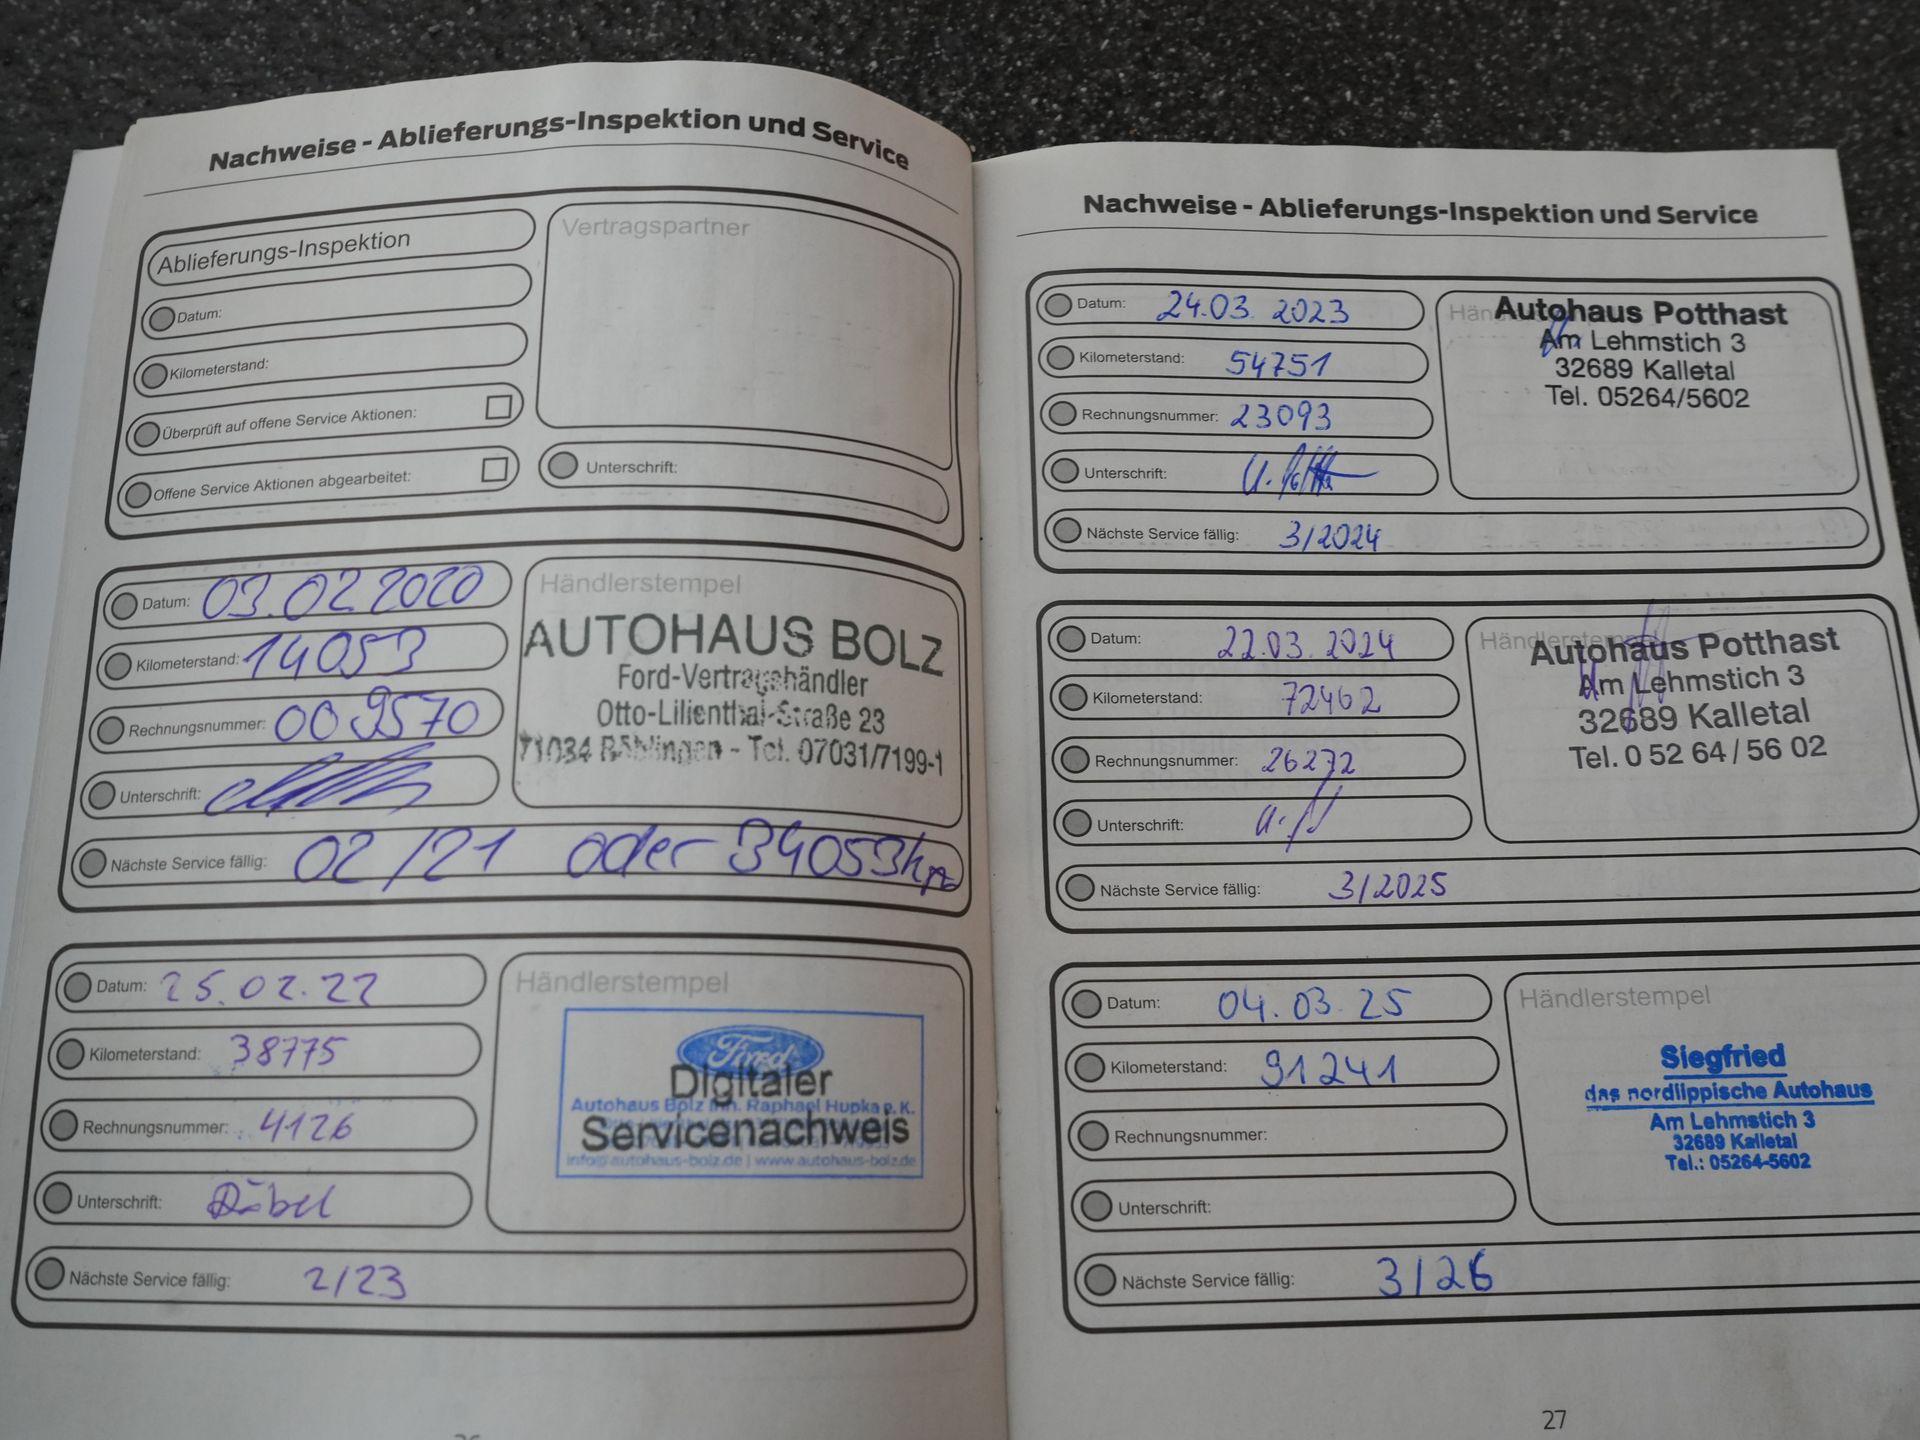 Nachweise - Ablieferungs-Inspektion und Service
Ablieferungs-Inspektion
Datum:
Kilometerstand:
Überprüft auf offene Service Aktionen:
Offene Service Aktionen abgearbeitet:
Vertragspartner
Unterschrift:
Datum: 03.02.2020
Kilometerstand: 14053
Rechnungsnummer: 009570
Unterschrift:
Nächste Service fällig: 02/21 oder 34053km
Händlerstempel
AUTOHAUS BOLZ
Ford-Vertragshändler
Otto-Lilienthal-Straße 23
71034 Böblingen - Tel. 07031/7199-1
Datum: 25.02.22
Kilometerstand: 38775
Rechnungsnummer: 4126
Unterschrift:
Nächste Service fällig: 2/23
Händlerstempel
Ford
Digitaler
Autohaus Bolz Inh. Raphael Hupka e. K.
Servicenachweis
info@autohaus-bolz.de | www.autohaus-bolz.de
Nachweise - Ablieferungs-Inspektion und Service
Datum: 24.03.2023
Kilometerstand: 54751
Rechnungsnummer: 23093
Unterschrift:
Nächste Service fällig: 3/2024
Autohaus Potthast
Am Lehmstich 3
32689 Kalletal
Tel. 05264/5602
Datum: 22.03.2024
Kilometerstand: 72462
Rechnungsnummer: 26272
Unterschrift:
Nächste Service fällig: 3/2025
Händlerstempel
Autohaus Potthast
Am Lehmstich 3
32689 Kalletal
Tel. 0 52 64 / 56 02
Datum: 04.03.25
Kilometerstand: 91241
Rechnungsnummer:
Unterschrift:
Nächste Service fällig: 3/26
Händlerstempel
Siegfried
das nordlippische Autohaus
Am Lehmstich 3
32689 Kalletal
Tel.: 05264-5602
27